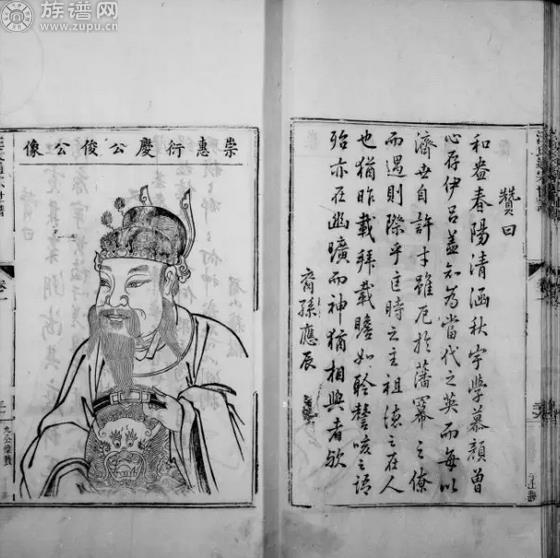 族谱网
www.zupu.cn
贊曰
和盎春陽清涵秋宇學慕顏曾
心存伊呂蓋知為當代之英而每以
濟世自許才雖厄於藩幕之僚
而遇則際乎
時之主祖德之在人
也猶昨載拜載瞻如聆謦咳之語
殆亦在幽曠而神猶相與者歟
裔孫應辰
崇惠衍慶公俊公像